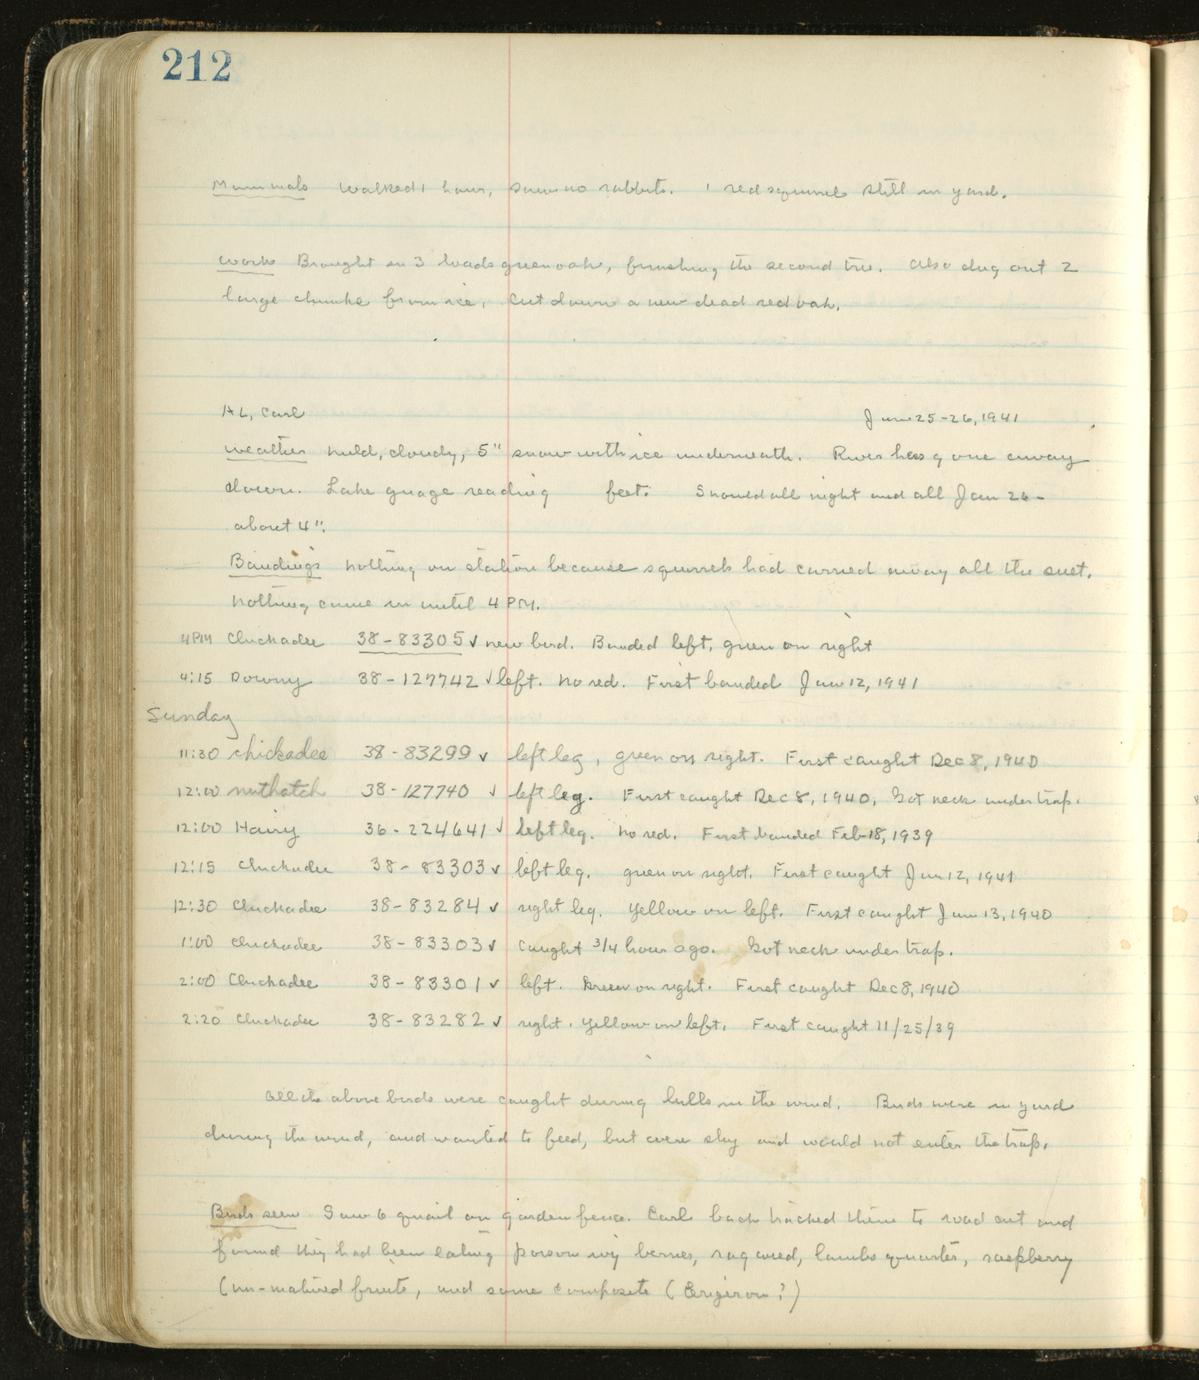 212
Mammals Walked 1 hour, saw no rabbits. 1 red squirrel still in yard.
Work Brought in 3 loads green oak, finishing the second tree. Also dug out 2
large chunks from ice. Cut down a new dead red oak.
AL, Carl Jan 25-26, 1941
Weather Mild, cloudy, 5" snow with ice underneath. River has gone away
down. Lake guage reading feet. Snowed all night and all Jan 26 -
about 4".
Banding: Nothing on station because squirrels had carried away all the suet.
Nothing came in until 4 PM.
4PM Chickadee 38-83305 ✓ new bird. Banded left, green on right
4:15 Downy 38-127742 ✓ left. No red. First banded Jan 12, 1941
Sunday
11:30 Chickadee 38-83299 ✓ left leg, green on right. First caught Dec 8, 1940
12:00 nuthatch 38-127740 ✓ left leg. First caught Dec 8, 1940, Got neck under trap.
12:00 Hairy 36-224641 ✓ left leg. No red. First banded Feb 18, 1939
12:15 Chickadee 38-83303 ✓ left leg. green on right. First caught Jan 12, 1941
12:30 Chickadee 38-83284 ✓ right leg. Yellow on left. First caught Jan 13, 1940
1:00 Chickadee 38-83303 ✓ caught 3/4 hour ago. Got neck under trap.
2:00 Chickadee 38-83301 ✓ left. Green on right. First caught Dec 8, 1940
2:20 Chickadee 38-83282 ✓ right. Yellow on left. First caught 11/25/39
All the above birds were caught during lulls in the wind. Birds were in yard
during the wind, and wanted to feed, but were shy and would not enter the trap.
Birds seen Saw 6 quail on garden fence. Carl back tracked them to road cut and
found they had been eating poison ivy berries, ragweed, lambs quarter, raspberry
(un-matured fruits, and some composite (Erigeron?)